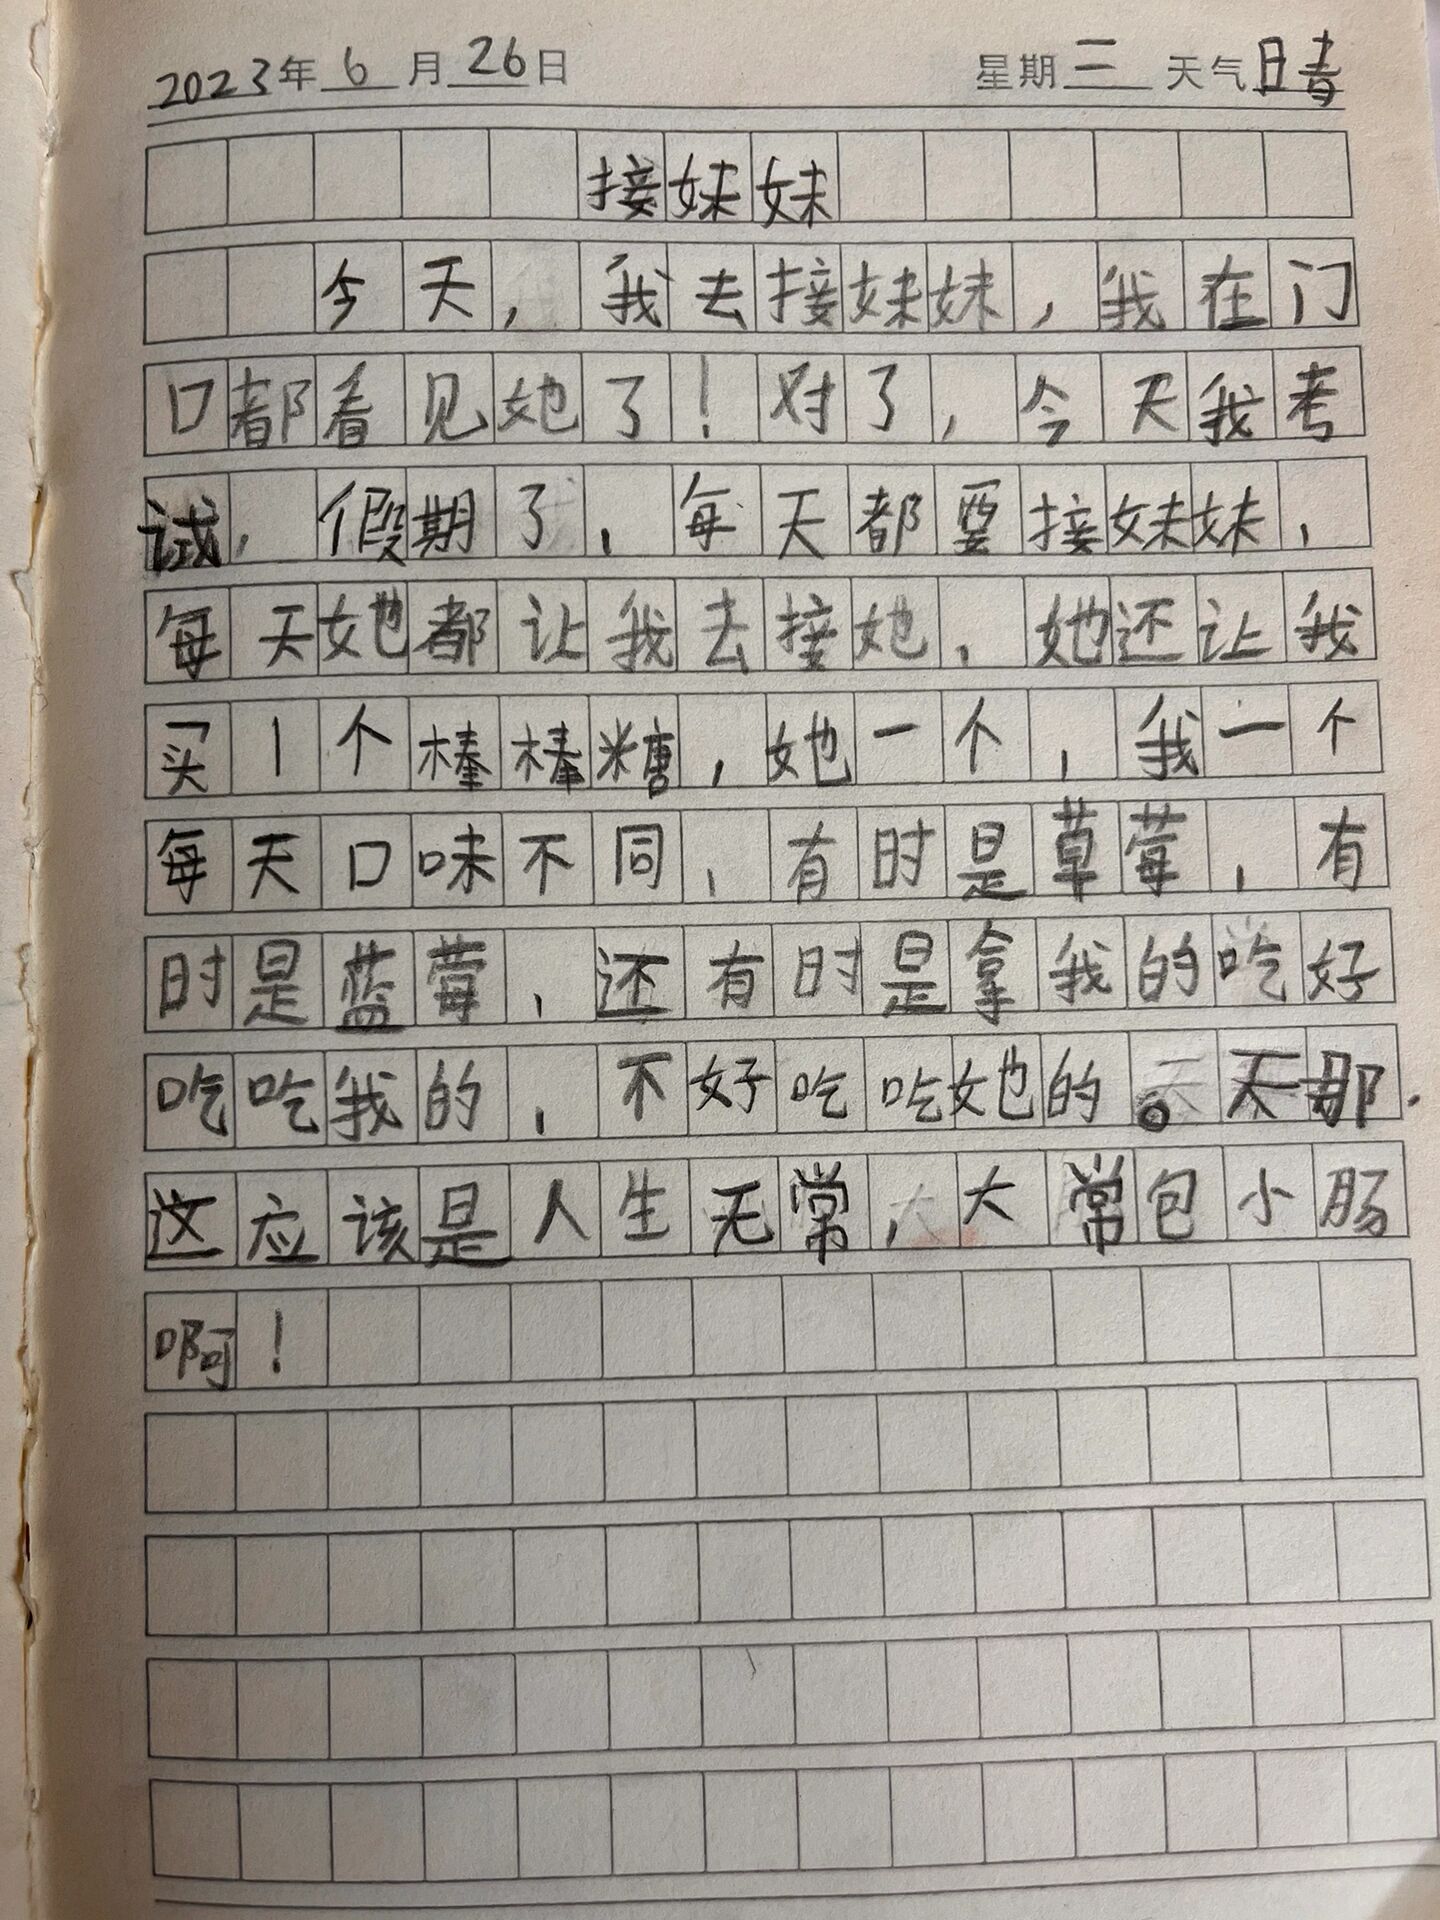 2023年6月26日 星期三 天气晴
接妹妹
今天，我去接妹妹，我在门
口都看见她了！对了，今天我考
试，假期了，每天都要接妹妹，
每天她都让我去接她，她还让我
买1个棒棒糖，她一个，我一个
每天口味不同，有时是草莓，有
时是蓝莓，还有时是拿我的吃好
吃吃我的，不好吃吃她的。天那.
这应该是人生无常，大常包小肠
啊！